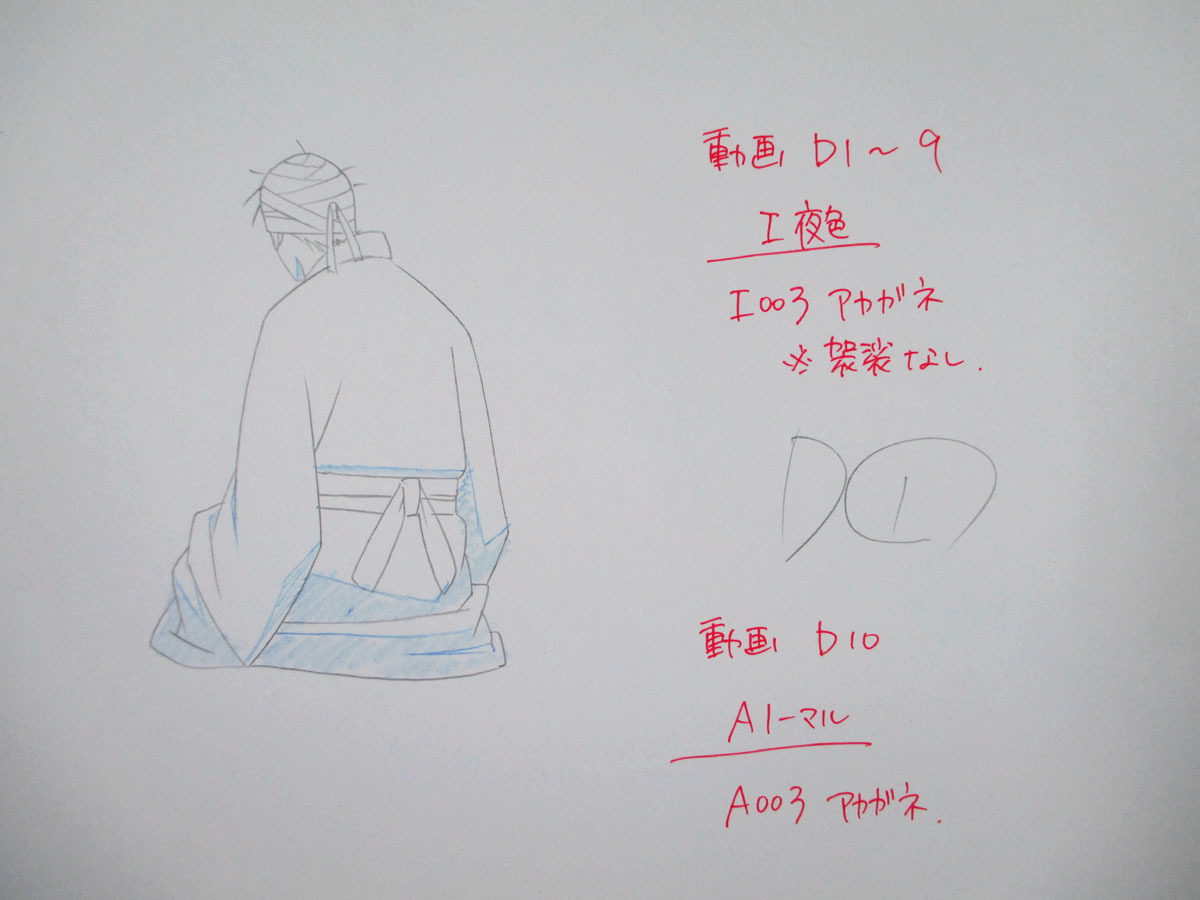 動画 D1～9
I 夜色
I003 アカガネ
※袈裟なし.
D①
動画 D10
A ノーマル
A003 アカガネ.